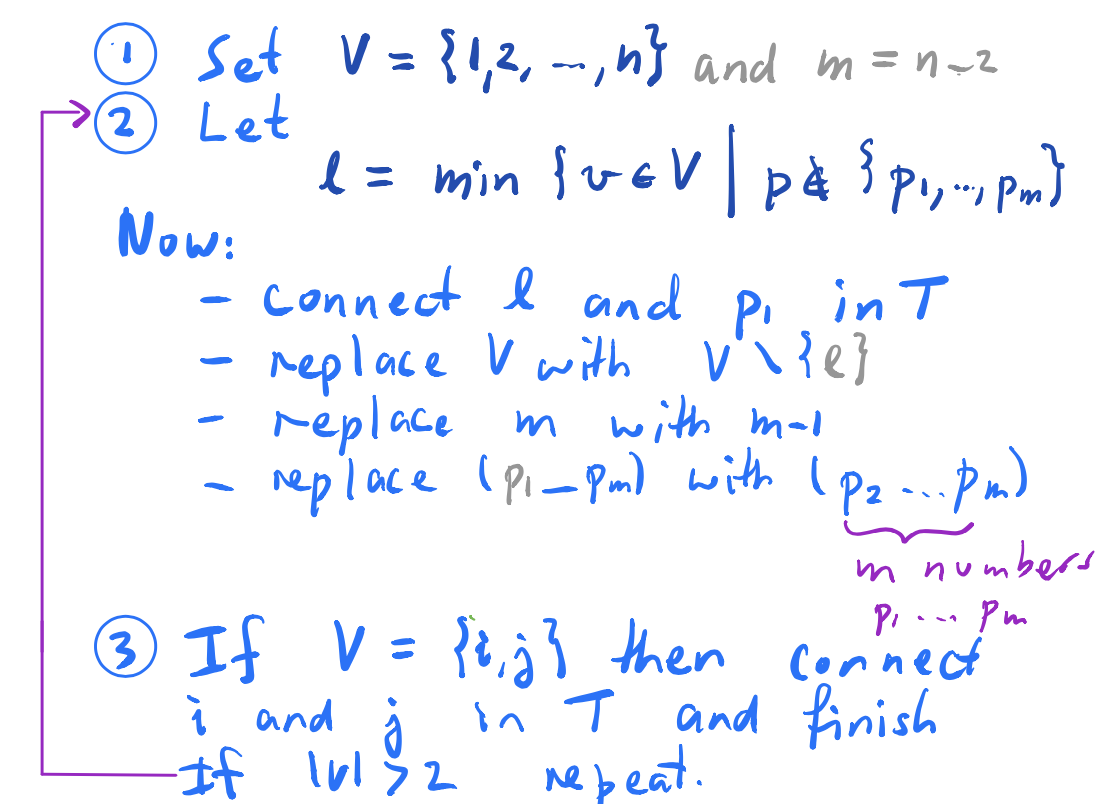 ① Set V = {1,2, ..., n} and m = n-2
② Let
l = min {v ∈ V | p ∉ {p₁, ..., pₘ}
Now:
- connect l and p₁ in T
- replace V with V \ {l}
- replace m with m-1
- replace (p₁ _ pₘ) with (p₂ ... pₘ)
m numbers
p₁ ... pₘ
③ If V = {i,j} then connect
i and j in T and finish
If |V| > 2 repeat.